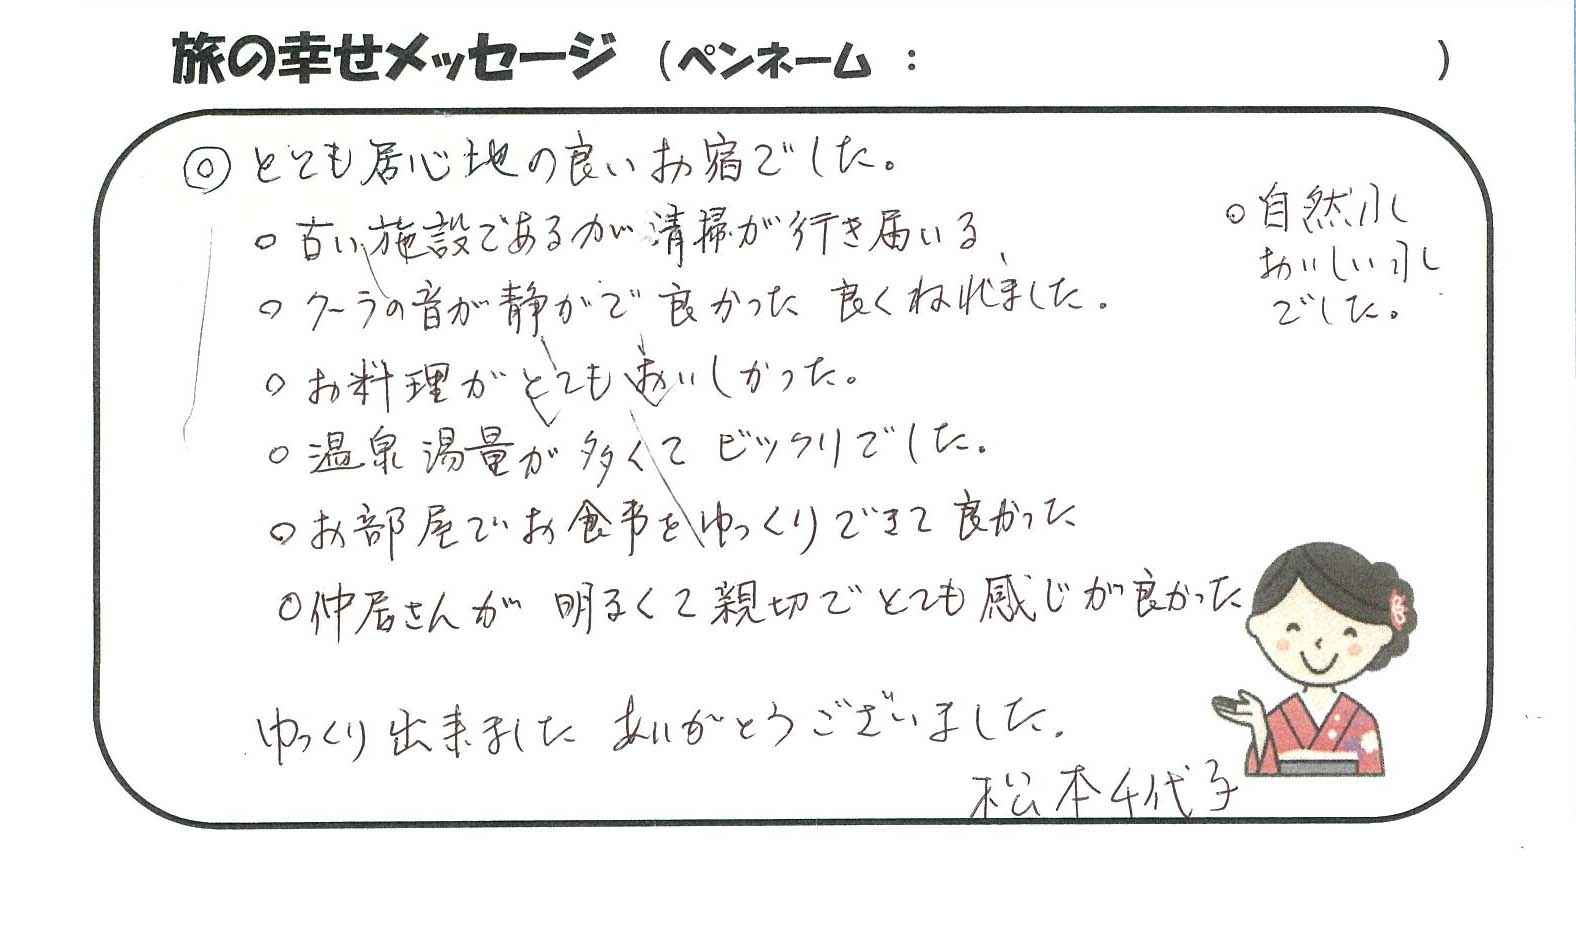 旅の幸せメッセージ (ペンネーム : )
◎ とても居心地の良いお宿でした。
○ 古い施設であるが清掃が行き届いる
○ クーラの音が静かで 良かった 良くねれました。
○ お料理がとてもおいしかった。
○ 温泉湯量が多くて ビックリでした。
○ お部屋でお食事をゆっくりできて良かった
○ 仲居さんが 明るくて親切でとても感じが良かった
○ 自然水
おいしい水
でした。
ゆっくり出来ました ありがとうございました。
松本千代子